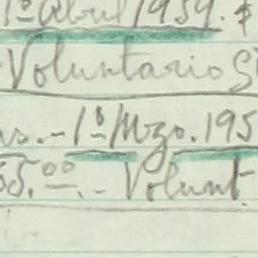 1º Abril 1959.
Voluntario
1º Mzo. 195
55.00.- Volunt.